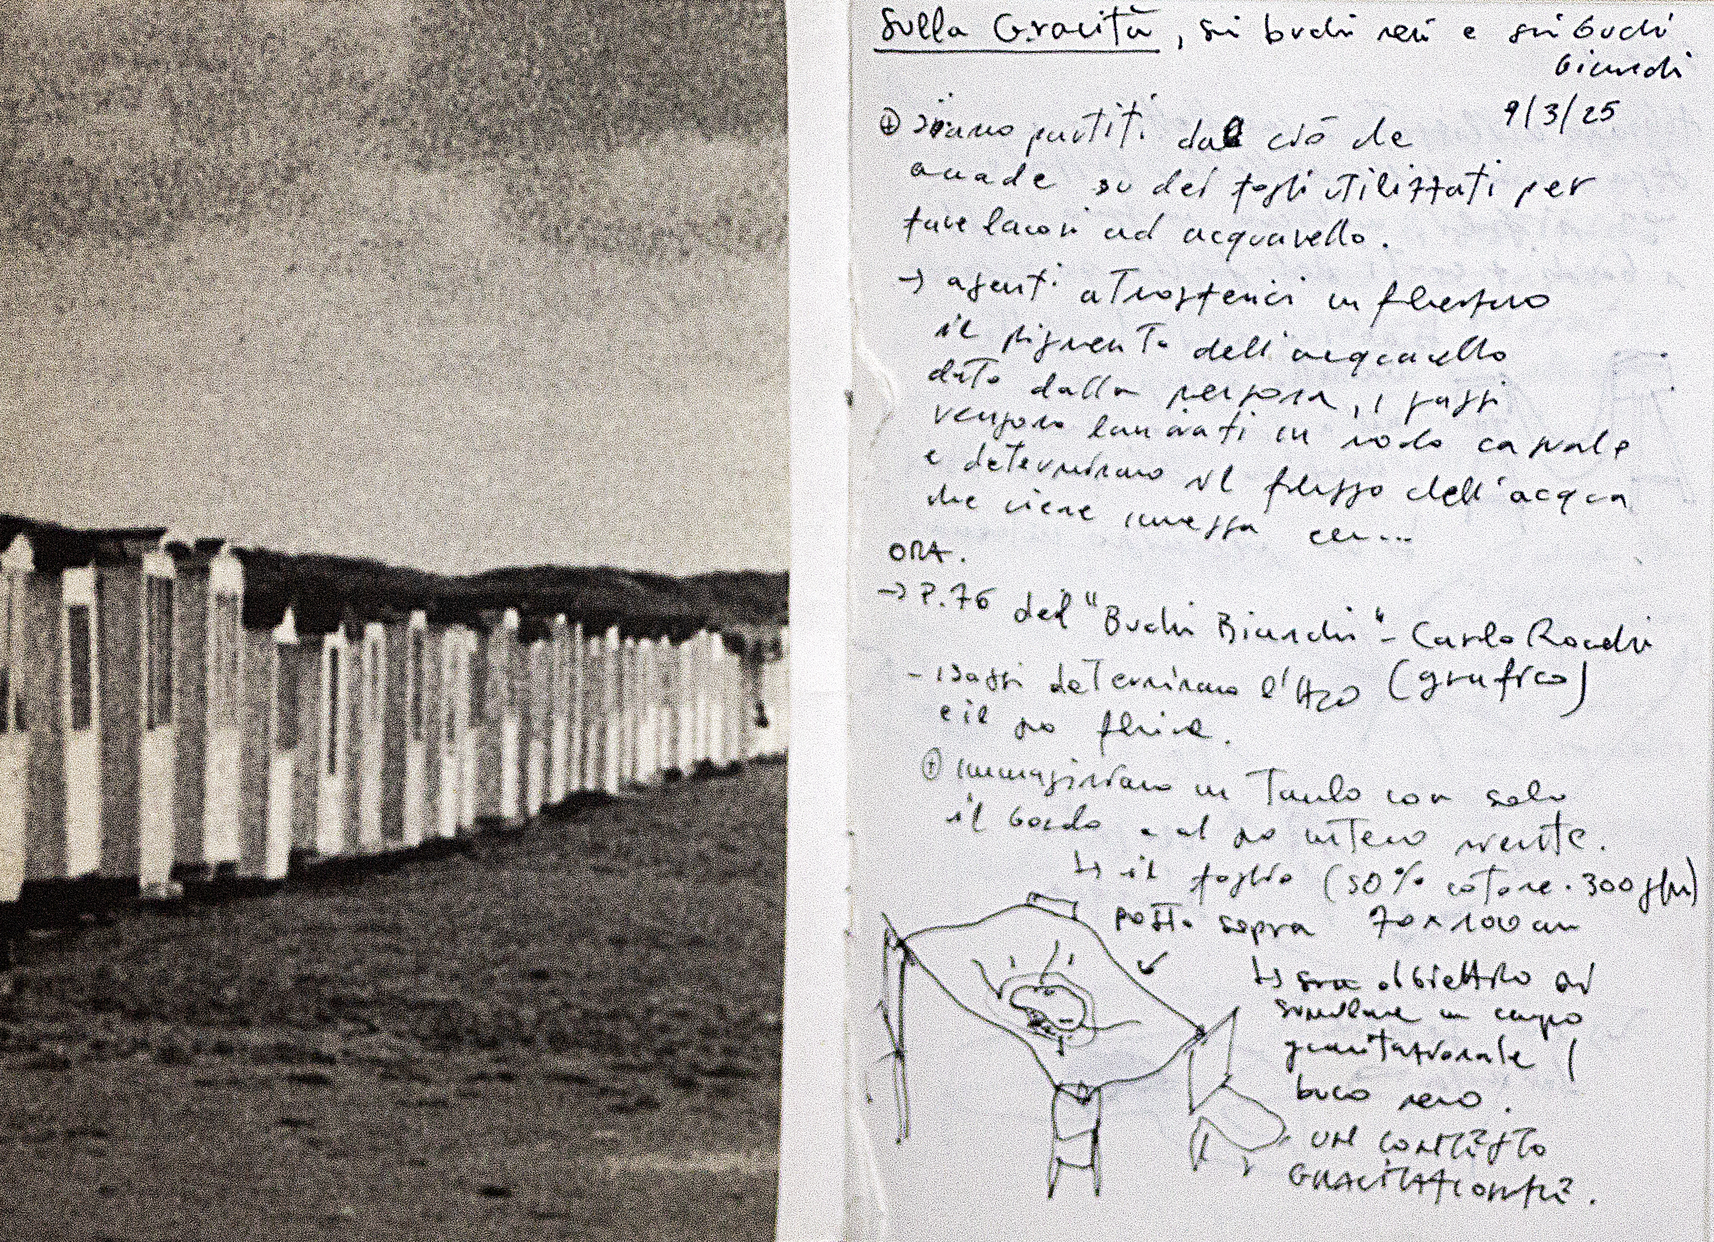 Sulla Gravità, sui buchi neri e sui buchi
bianchi
9/3/25
⊕ Siamo partiti dal ciò che
accade su dei fogli utilizzati per
fare lavori ad acquarello.
→ agenti atmosferici influenzano
il pigmento dell'acquarello
dato dalla persona, i sassi
vengono lanciati in modo casuale
e determinano il flusso dell'acqua
che viene immessa con...
ORA.
→ P.76 del "Buchi Bianchi" - Carlo Rovelli
(grafico)
- i sassi determinano l'H2O
e il suo fluire.
⊕ immaginiamo un Tavolo con solo
il bordo e al suo interno niente.
↳ il foglio (50% cotone · 300 g/m)
posto sopra 70x100 cm
↳ sua obiettivo di
simulare un campo
gravitazionale /
buco nero.
un contesto
GRAVITAZIONALE.